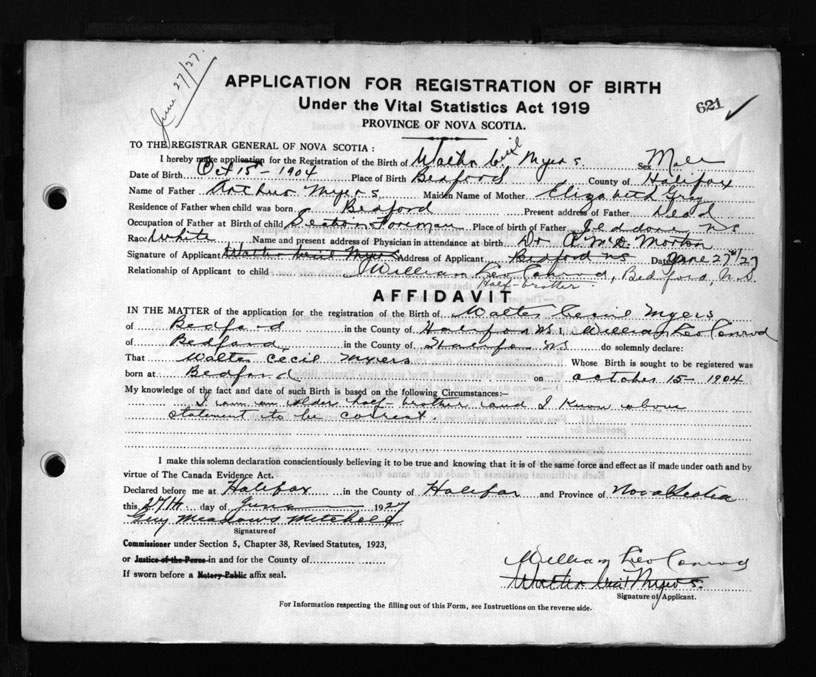 June 27/27.
APPLICATION FOR REGISTRATION OF BIRTH
Under the Vital Statistics Act 1919
621
PROVINCE OF NOVA SCOTIA.
TO THE REGISTRAR GENERAL OF NOVA SCOTIA:
I hereby make application for the Registration of the Birth of Walter Cecil Myers Sex Male
Date of Birth Oct 15 - 1904 Place of Birth Bedford County of Halifax
Name of Father Arthur Myers Maiden Name of Mother Elizabeth Gray
Residence of Father when child was born Bedford Present address of Father Dead
Occupation of Father at Birth of child Section Foreman Place of birth of Father Jeddore NS
Race White Name and present address of Physician in attendance at birth Dr
Signature of Applicant Walter Cecil Myers Address of Applicant Bedford NS Date June 27th/27
Relationship of Applicant to child William Leo Conrod, Bedford, N.S.
Half-brother.
AFFIDAVIT
IN THE MATTER of the application for the registration of the Birth of Walter Cecil Myers
of Bedford in the County of Halifax NS, William Leo Conrod
of Bedford in the County of Halifax NS do solemnly declare:
That Walter Cecil Myers Whose Birth is sought to be registered was
born at Bedford on October 15 - 1904
My knowledge of the fact and date of such Birth is based on the following Circumstances:-
I am an older half-brother and I know above
statement to be correct.
I make this solemn declaration conscientiously believing it to be true and knowing that it is of the same force and effect as if made under oath and by
virtue of The Canada Evidence Act.
Declared before me at Halifax in the County of Halifax and Province of Nova Scotia
this 27th day of June 1927
Guy Meadows Mitchell
Signature of
Commissioner under Section 5, Chapter 38, Revised Statutes, 1923,
or Justice of the Peace in and for the County of
William Leo Conrod
If sworn before a Notary Public affix seal.
Walter Cecil Myers.
Signature of Applicant.
For Information respecting the filling out of this Form, see Instructions on the reverse side.